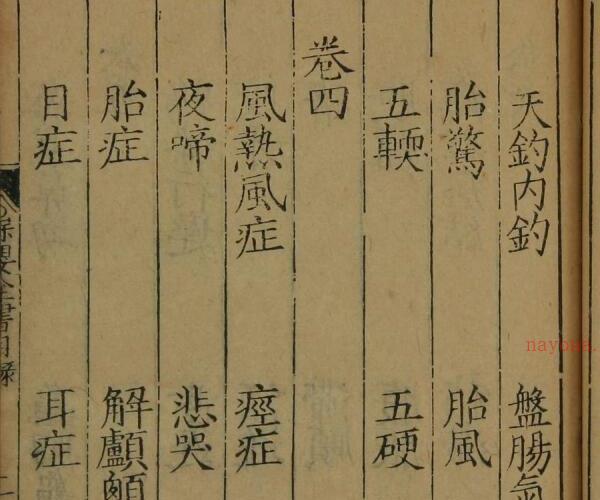 天釣内釣 盤腸氣
胎驚 胎風
五輭 五硬
卷四
風熱風症 痙症
夜啼 悲哭
胎症 解顱
目症 耳症
保嬰全書目錄
nayona.